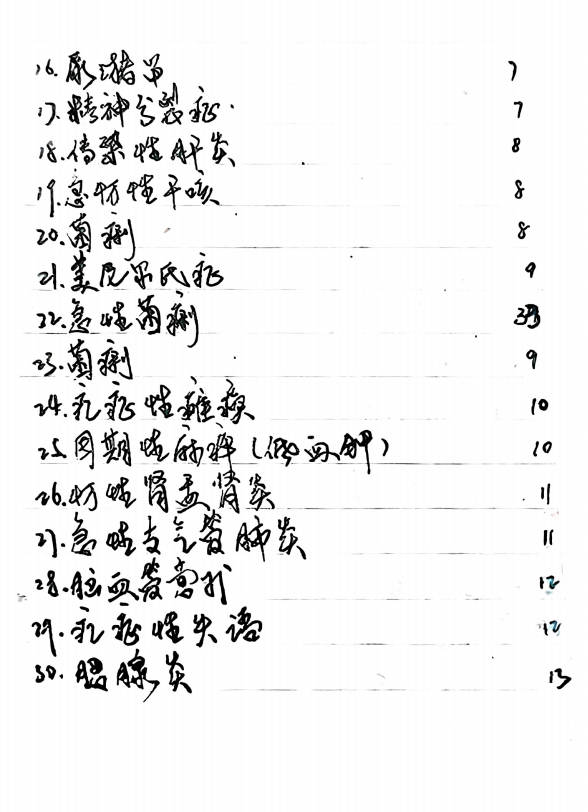 16. 尿潴留 7
17. 精神分裂症 7
18. 传染性肝炎 8
19. 急 性干咳 8
20. 菌痢 8
21. 美尼尔氏症 9
22. 急性菌痢
23. 菌痢 9
24. 癔症性瘫痪 10
25. 周期性麻痹(低血钾) 10
26. 性肾盂肾炎 11
27. 急性支气管肺炎 11
28. 脑血管意外 12
29. 癔症性失语 12
30. 腮腺炎 13